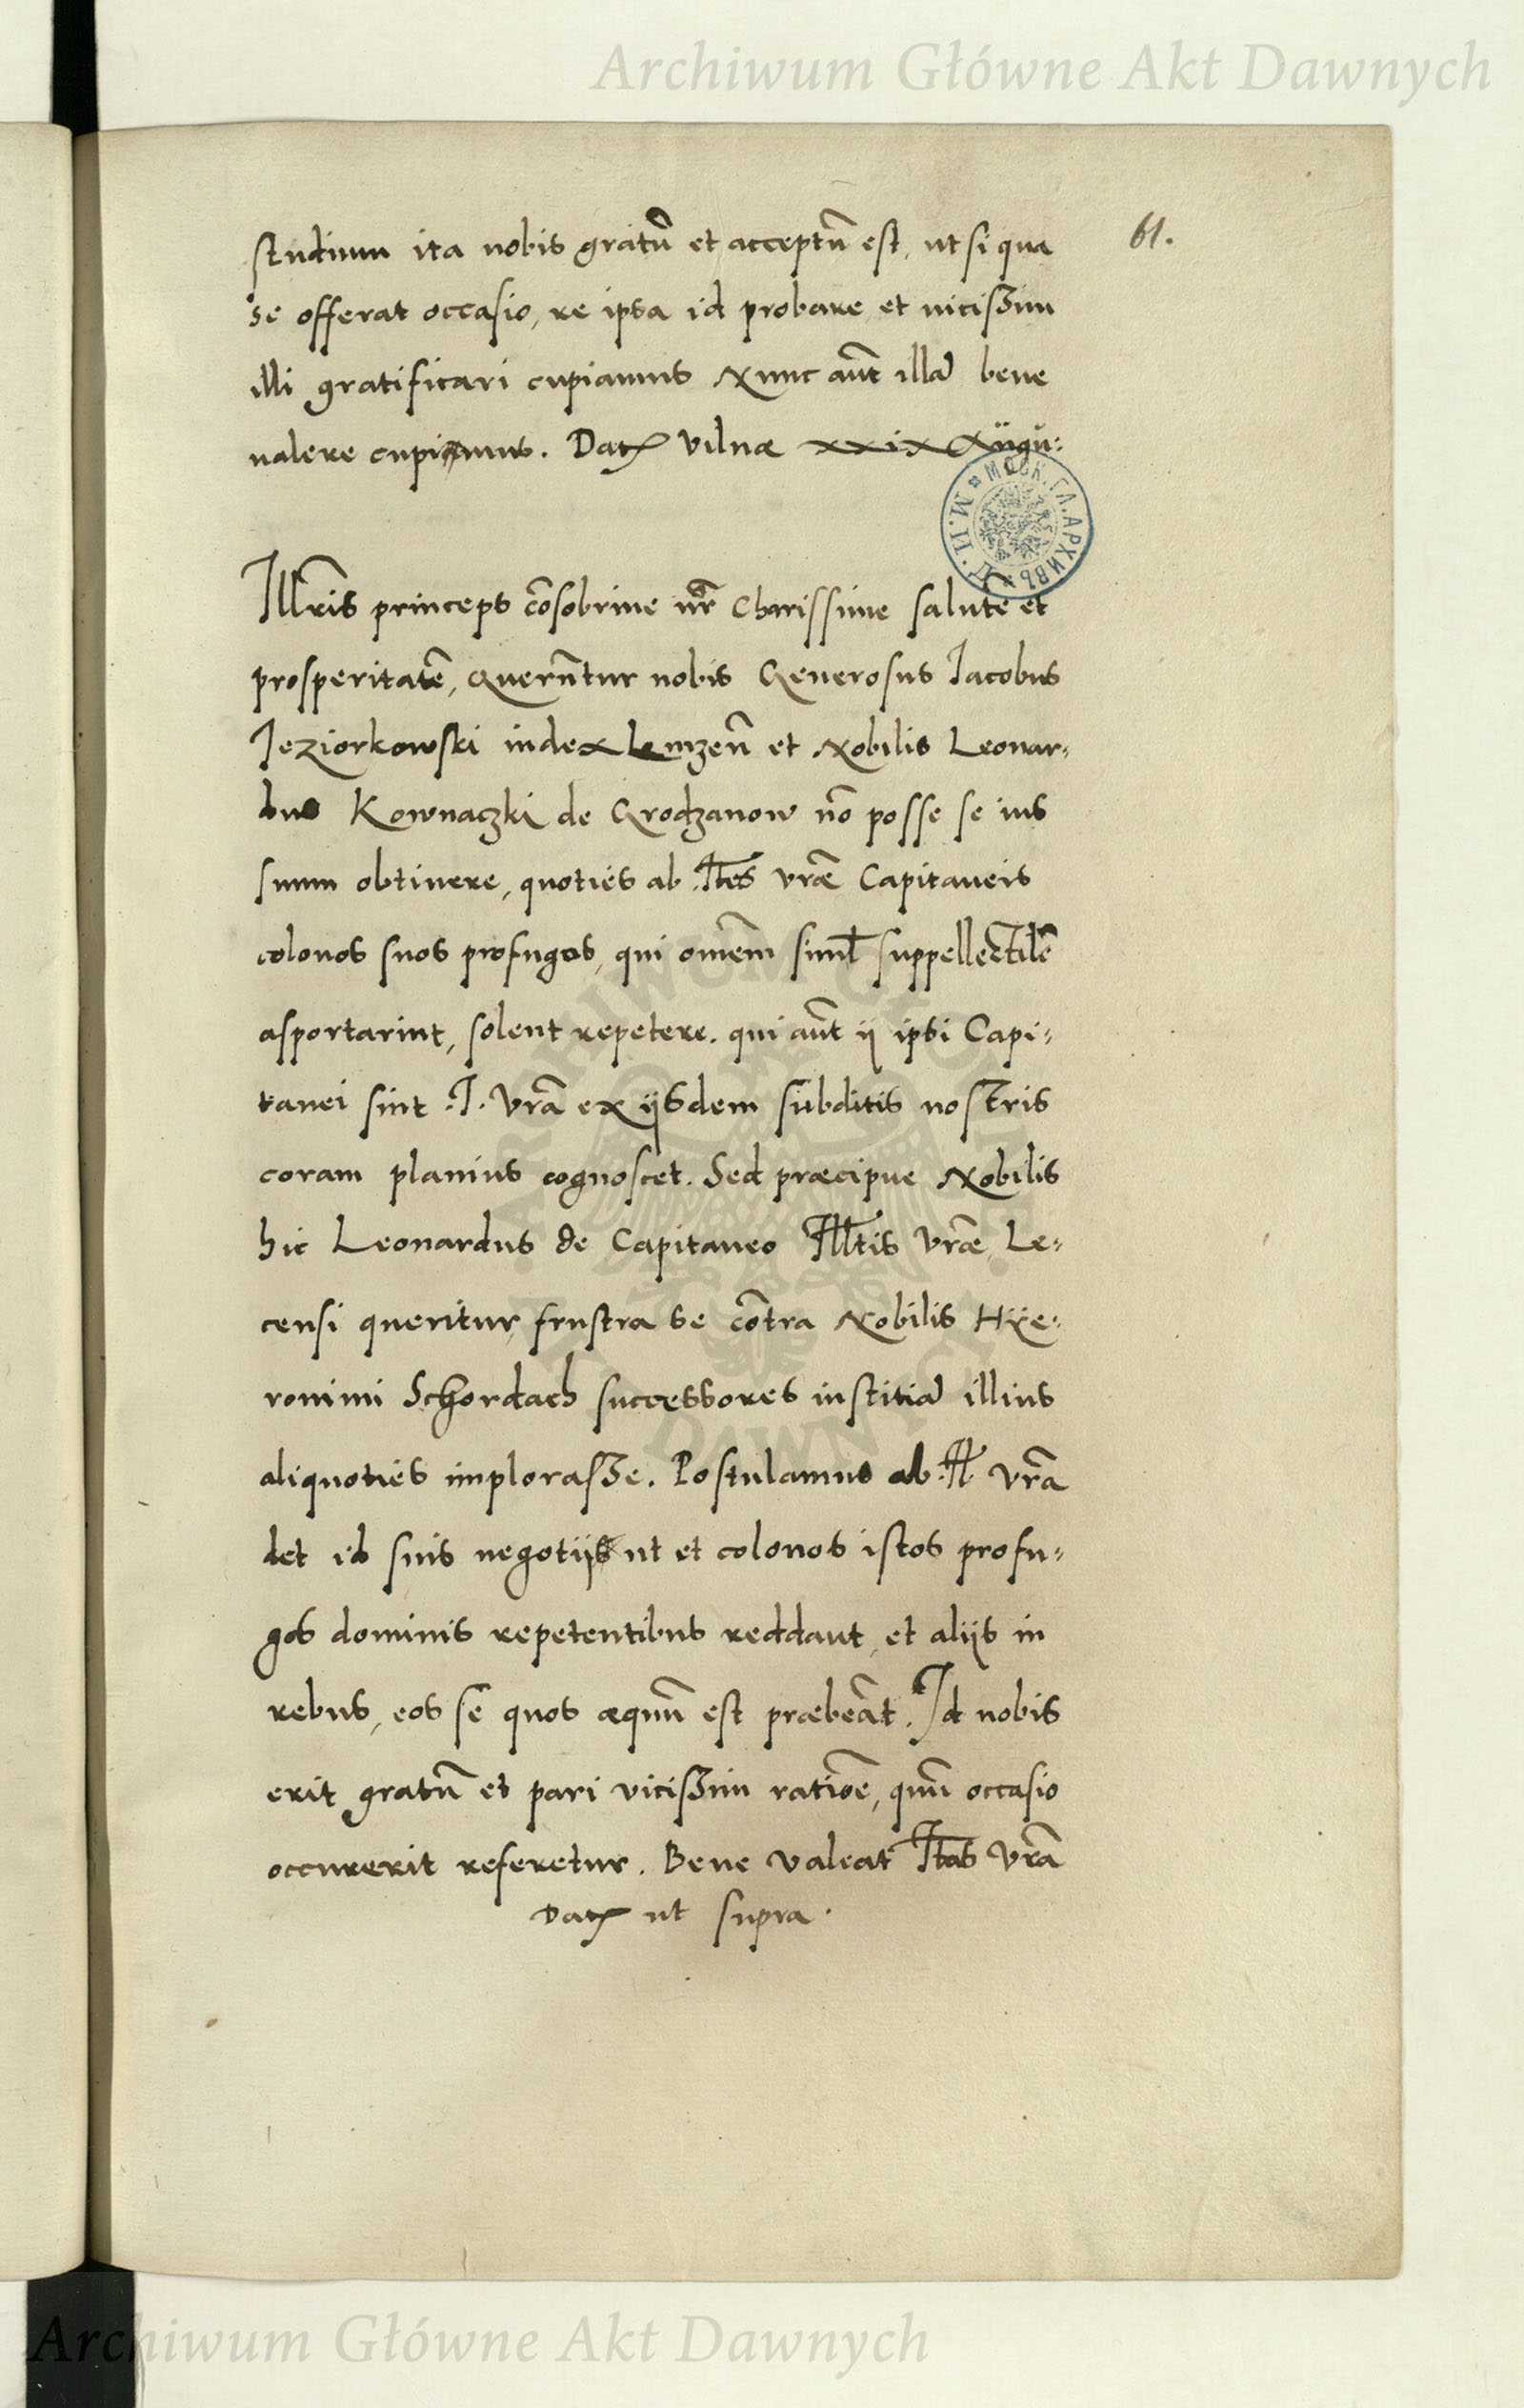 Archiwum Główne Akt Dawnych
61.
studium ita nobis gratũ et acceptũ est, ut si qua
se offerat occasio, re ipsa id probare et uicissim
illi gratificari cupiamus Nunc aũt illã bene
ualere cupimus. Dat Vilnæ xxix Augu:
МОСК. ГЛ. АРХИВЪ М. И. Д.
Illr̃is princeps cõsobrine nr̃ charissime salutẽ et
prosperitatẽ, Querũtur nobis Generosus Jacobus
Jeziorkowski iudex Lomzeñ et Nobilis Leonar,
dus Kownaczki de Grodzanow nõ posse se ius
suum obtinere, quoties ab Iltẽs vræ̃ Capitaneis
colonos suos profugos, qui omẽm simł suppellectilẽ
asportarint, solent repetere. qui aũt ij ipsi Capi,
tanei sint .I. Vrã ex ijsdem subditis nostris
coram planius cognoscet. Sed præcipue Nobilis
hic Leonardus de Capitaneo Illtis Vræ̃, Le,
censi queritur frustra se cõtra Nobilis Hÿe,
ronimi Schordach successores iustitiã illius
aliquoties implorasse. Postulamus ab .Il. vrã
det id suis negotijs ut et colonos istos profu,
gos dominis repetentibus reddant, et alijs in
rebus, eos se quos æquũ est præbeãt. Id nobis
erit gratũ et pari vicissim ratiõe, quũ occasio
occurerit referetur. Bene valeat Iltas Vrã
Dat ut supra.
Archiwum Główne Akt Dawnych